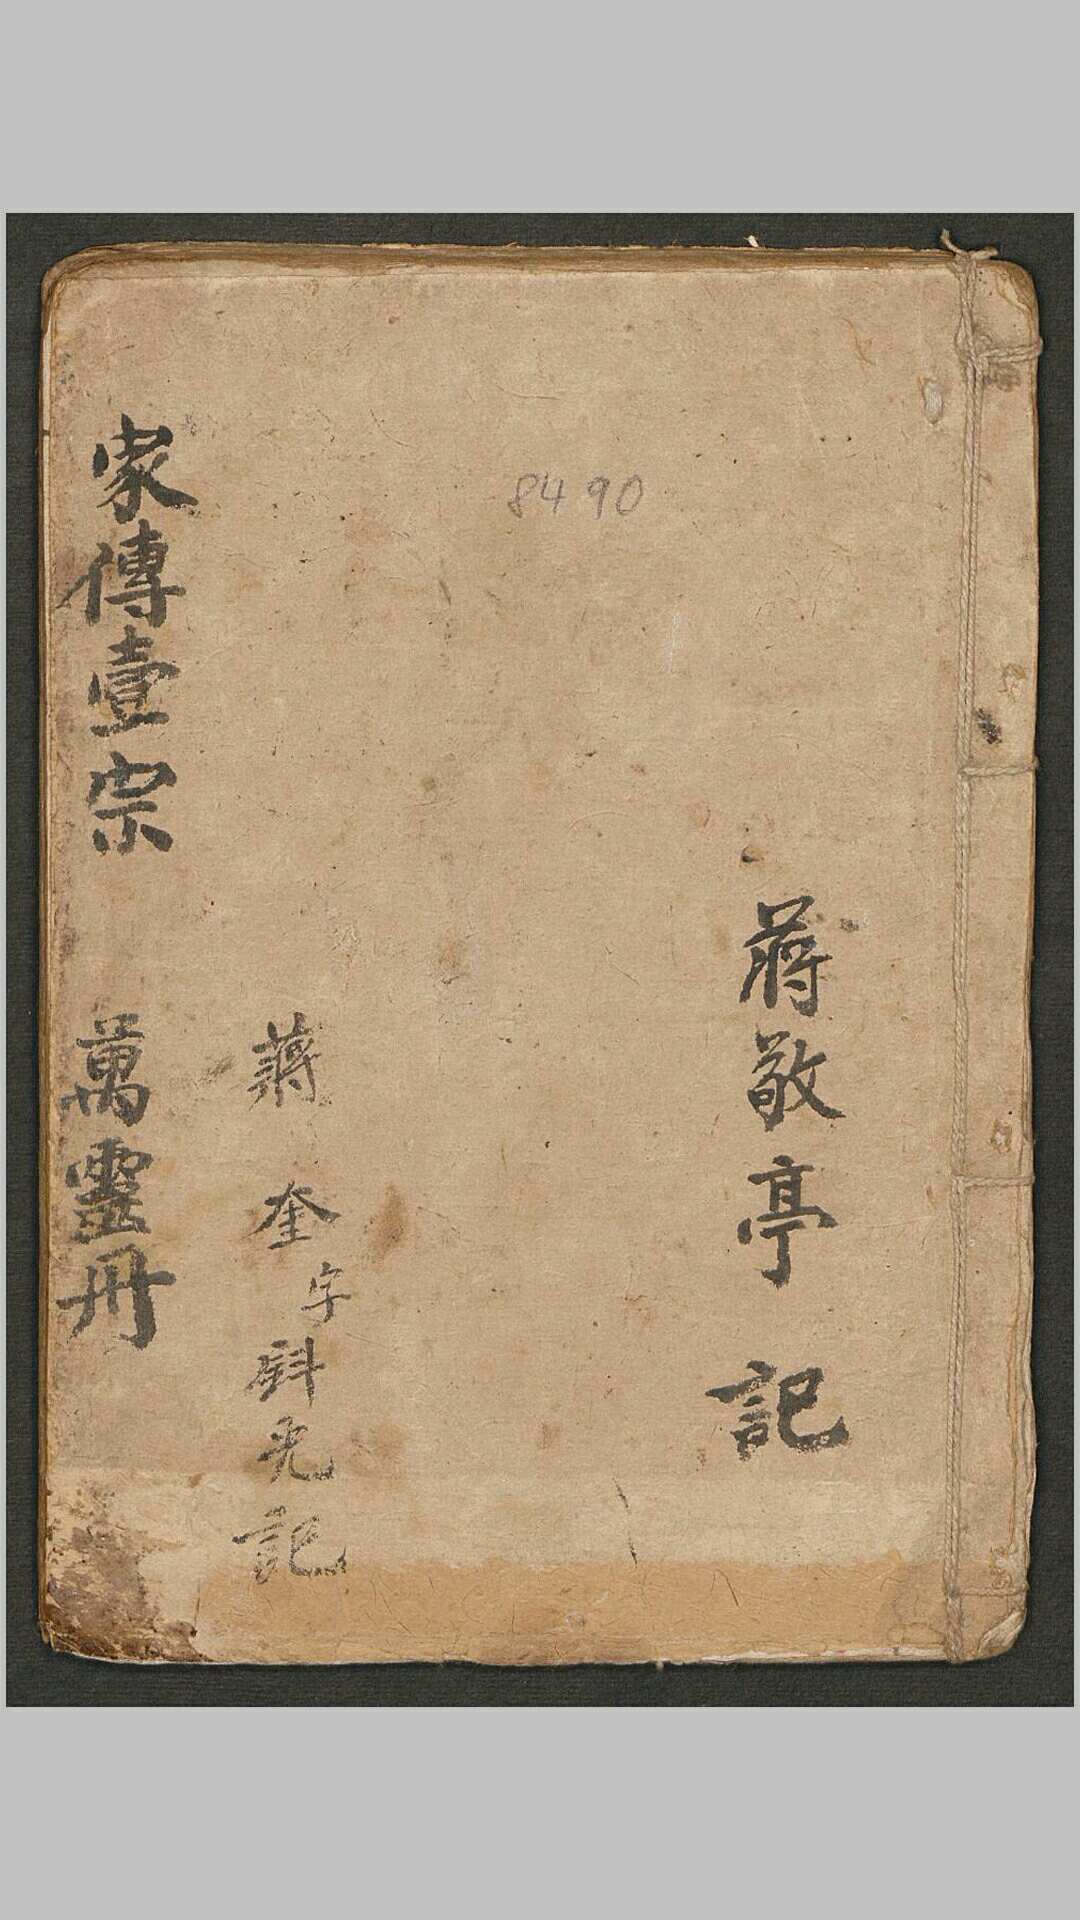 蔣敬亭 記
蔣奎字斟光記
家傳壹宗 萬靈册
8490